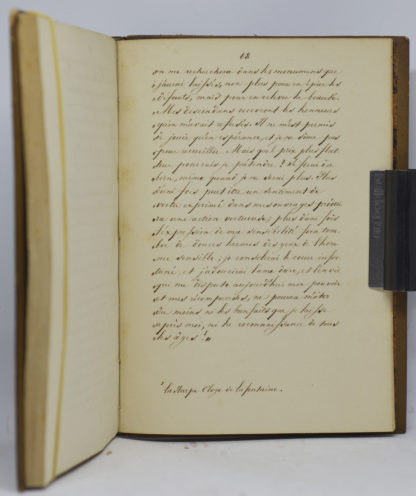 68
on me recherchera dans les monumens que
j'aurai laissés, non plus pour en épier les
défauts, mais pour en relever la beauté.
Mes descendans recevront les honneurs
qu'on m'avait refusés. Il ne m'est permis
de jouir qu'en espérance, et je ne sème pas
pour recueillir. Mais quel prix plus flat-
teur pouvais-je prétendre? Je ferai du
bien, même quand je ne serai plus. Plus
d'une fois peut être un sentiment de
vertu exprimé dans mes ouvrages produi-
ra une action vertueuse; plus d'une fois
l'expression de ma sensibilité fera tom-
ber de douces larmes des yeux de l'hom-
me sensible; je consolerai le cœur infor-
tuné, et j'adoucirai l'ame dure, et l'envie
qui me dispute aujourd'hui mon pouvoir
et mes récompenses, ne pourra m'ôter
du moins ni les bienfaits que je laisse
après moi, ni la reconnaissance de tous
les âges¹ »
¹ La Harpe Eloge de Lafontaine.